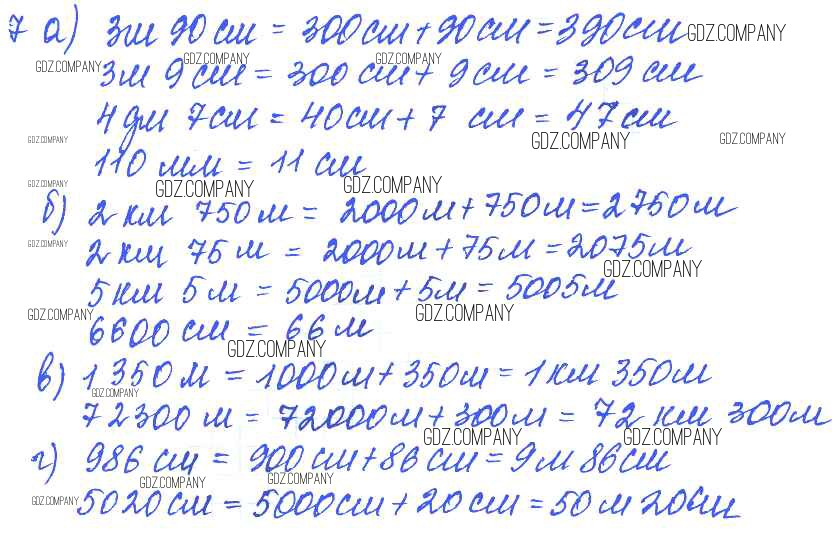 7 а) 3м 90 см = 300 см + 90 см = 390 см GDZ.COMPANY
GDZ.COMPANY GDZ.COMPANY GDZ.COMPANY
3 м 9 см = 300 см + 9 см = 309 см
4 дм 7 см = 40 см + 7 см = 47 см
GDZ.COMPANY GDZ.COMPANY GDZ.COMPANY
110 мм = 11 см
GDZ.COMPANY GDZ.COMPANY GDZ.COMPANY
б) 2 км 750 м = 2000 м + 750 м = 2750 м
GDZ.COMPANY
2 км 75 м = 2000 м + 75 м = 2075 м
GDZ.COMPANY
5 км 5 м = 5000 м + 5 м = 5005 м
GDZ.COMPANY GDZ.COMPANY
6600 см = 66 м
GDZ.COMPANY
в) 1 350 м = 1000 м + 350 м = 1 км 350 м
GDZ.COMPANY
72300 м = 72000 м + 300 м = 72 км 300 м
GDZ.COMPANY GDZ.COMPANY
г) 986 см = 900 см + 86 см = 9 м 86 см
GDZ.COMPANY GDZ.COMPANY
GDZ.COMPANY 5020 см = 5000 см + 20 см = 50 м 20 см